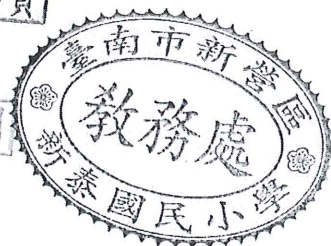 臺南市新營區
教務處
新泰國民小學